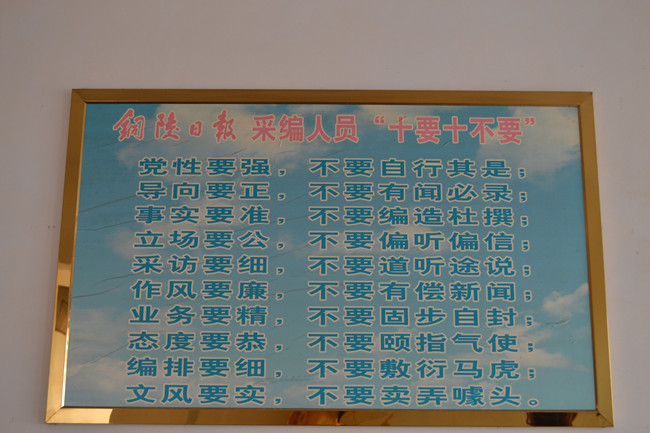 铜陵日报 采编人员“十要十不要”
党性要强，不要自行其是；
导向要正，不要有闻必录；
事实要准，不要编造杜撰；
立场要公，不要偏听偏信；
采访要细，不要道听途说；
作风要廉，不要有偿新闻；
业务要精，不要固步自封；
态度要恭，不要颐指气使；
编排要细，不要敷衍马虎；
文风要实，不要卖弄噱头。